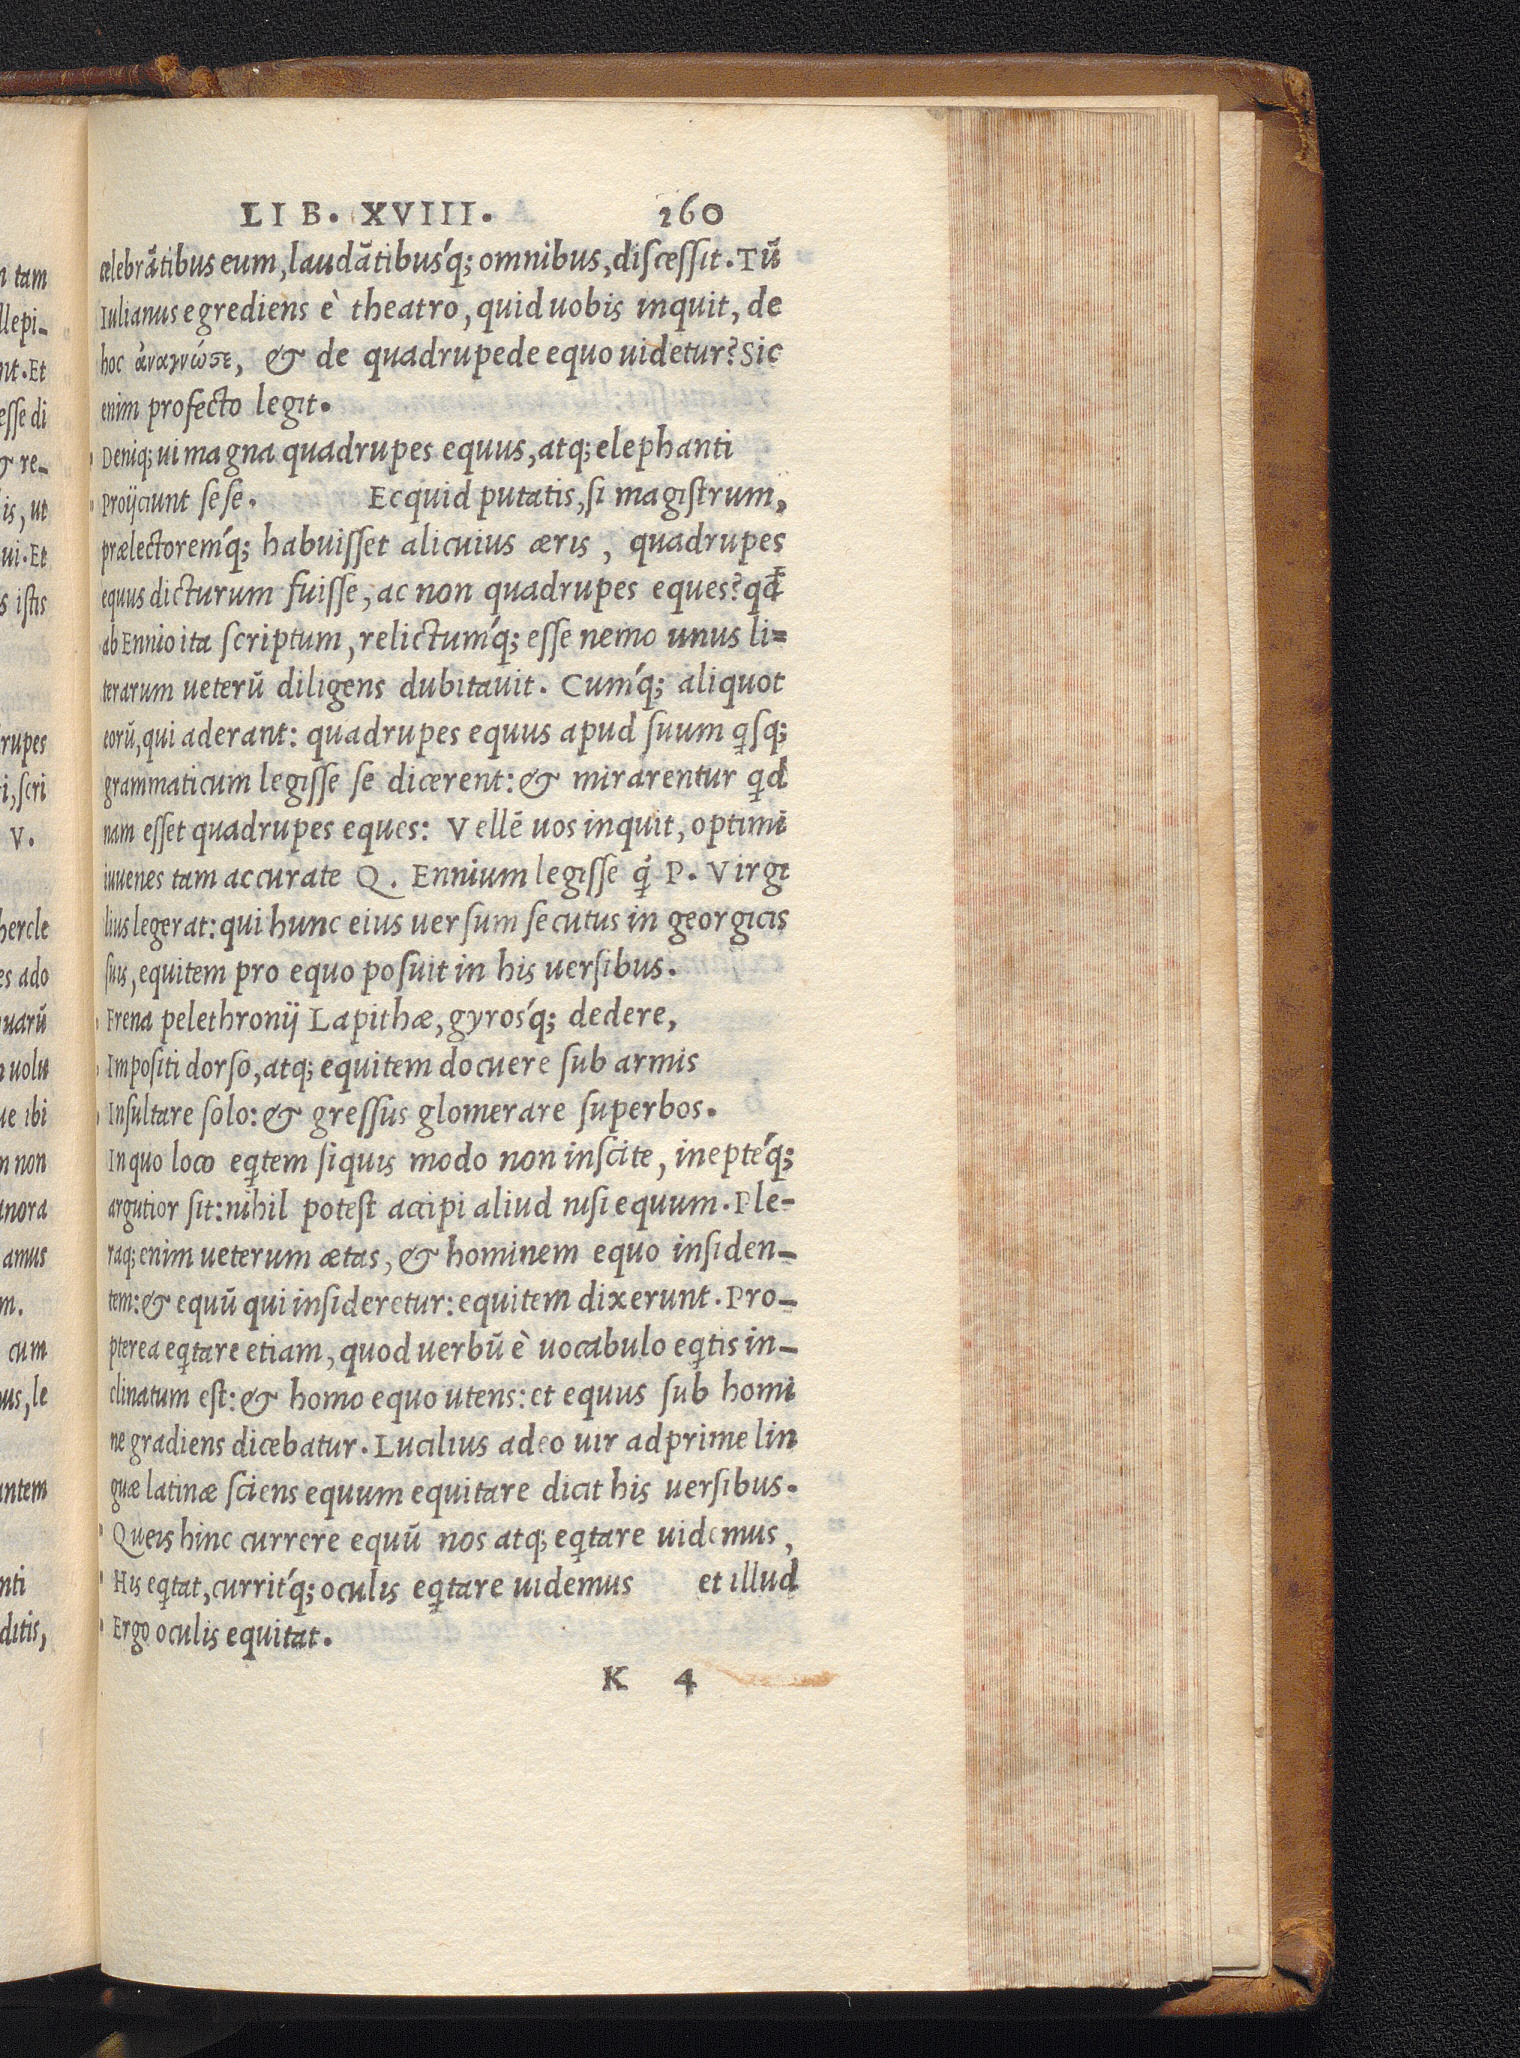 LIB. XVIII. 260
celebrãtibus eum, laudãtibusq́; omnibus, discessit. Tũ
Iulianus egrediens è theatro, quid uobis inquit, de
hoc ἀναγνώϛῃ, & de quadrupede equo uidetur? Sic
enim profecto legit.
Deniq; ui magna quadrupes equus, atq; elephanti
Proijciunt sese. Ecquid putatis, si magistrum,
prælectoremq́; habuisset alicuius æris, quadrupes
equus dicturum fuisse, ac non quadrupes eques? qđ
ab Ennio ita scriptum, relictumq́; esse nemo unus li=
terarum ueterũ diligens dubitauit. Cumq́; aliquot
eorũ, qui aderant: quadrupes equus apud suum q̣sq;
grammaticum legisse se dicerent: & mirarentur q̣d
nam esset quadrupes eques: Vellẽ uos inquit, optimi
iuuenes tam accurate Q. Ennium legisse q̃ P. Virgi
lius legerat: qui hunc eius uersum secutus in georgicis
suis, equitem pro equo posuit in his uersibus.
Frena pelethronij Lapithæ, gyrosq́; dedere,
Impositi dorso, atq; equitem docuere sub armis
Insultare solo: & gressus glomerare superbos.
In quo loco eq̣tem siquis modo non inscite, ineptéq;
argutior sit: nihil potest accipi aliud nisi equum. Ple-
raq; enim ueterum ætas, & hominem equo insiden-
tem: & equũ qui insideretur: equitem dixerunt. Pro-
pterea eq̣tare etiam, quod uerbũ è uocabulo eq̣tis in-
clinatum est: & homo equo utens: et equus sub homi
ne gradiens dicebatur. Lucilius adeo uir adprime lin
guæ latinæ sciens equum equitare dicit his uersibus.
Queis hinc currere equũ nos atq; eq̣tare uidemus,
His eq̣tat, curritq́; oculis eq̣tare uidemus et illud
Ergo oculis equitat.
K 4